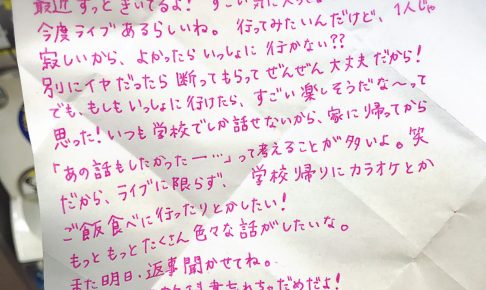 最近ずっときいてるよ! すごい
今度ライブあるらしいね。行ってみたいんだけど、1人じゃ
寂しいから、よかったらいっしょに行かない??
別にイヤだったら断ってもらってぜんぜん大丈夫だから!
でも、もしもいっしょに行けたら、すごい楽しそうだな〜って
思った!いつも学校でしか話せないから、家に帰ってから
「あの話もしたかったー…」って考えることが多いよ。笑
だから、ライブに限らず、学校帰りにカラオケとか
ご飯食べに行ったりとかしたい!
もっともっとたくさん色々な話がしたいな。
また明日、返事聞かせてね。
教科書忘れちゃだめだよ!